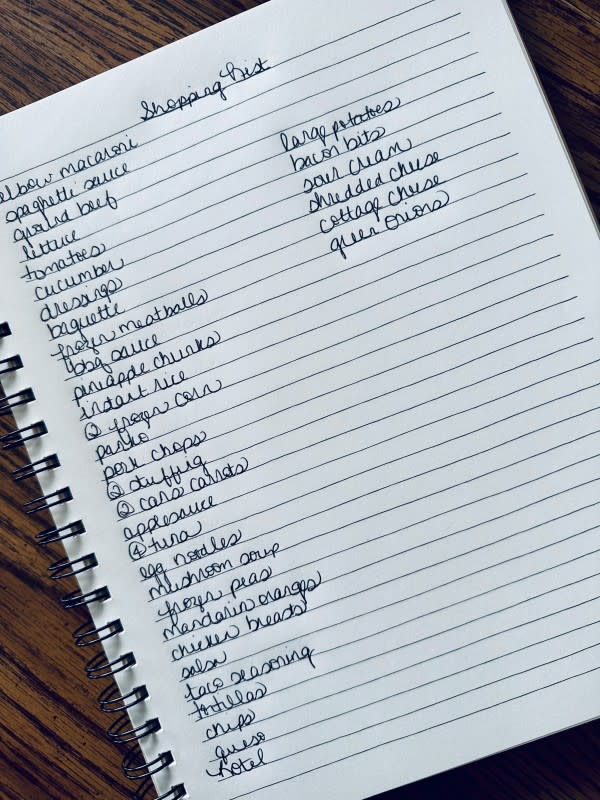 Shopping List
elbow macaroni
spaghetti sauce
ground beef
lettuce
tomatoes
cucumber
dressings
baguette
frozen meatballs
bbq sauce
pineapple chunks
instant rice
② frozen corn
panko
pork chops
② stuffing
② cans carrots
applesauce
④ tuna
egg noodles
mushroom soup
frozen peas
mandarin oranges
chicken breasts
salsa
taco seasoning
tortillas
chips
queso
rotel
large potatoes
bacon bits
sour cream
shredded cheese
cottage cheese
green onions